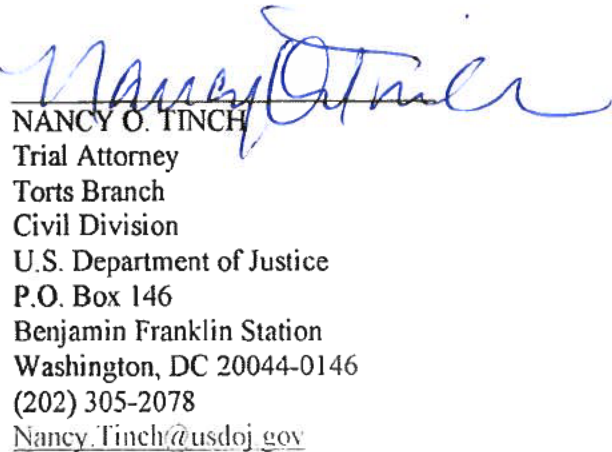 Nancy O Tinch
NANCY O. TINCH
Trial Attorney
Torts Branch
Civil Division
U.S. Department of Justice
P.O. Box 146
Benjamin Franklin Station
Washington, DC 20044-0146
(202) 305-2078
Nancy.Tinch@usdoj.gov